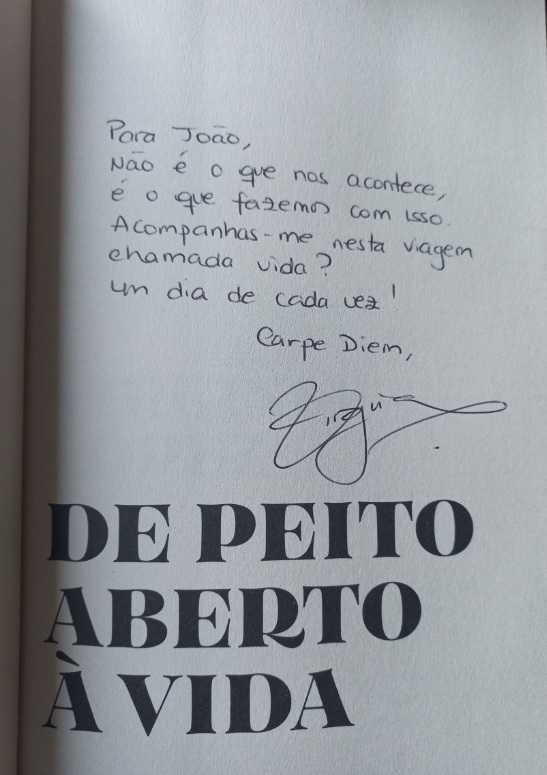 Para João,
Não é o que nos acontece,
é o que fazemos com isso.
Acompanhas-me nesta viagem
chamada vida?
um dia de cada vez!
Carpe Diem,
DE PEITO
ABERTO
À VIDA